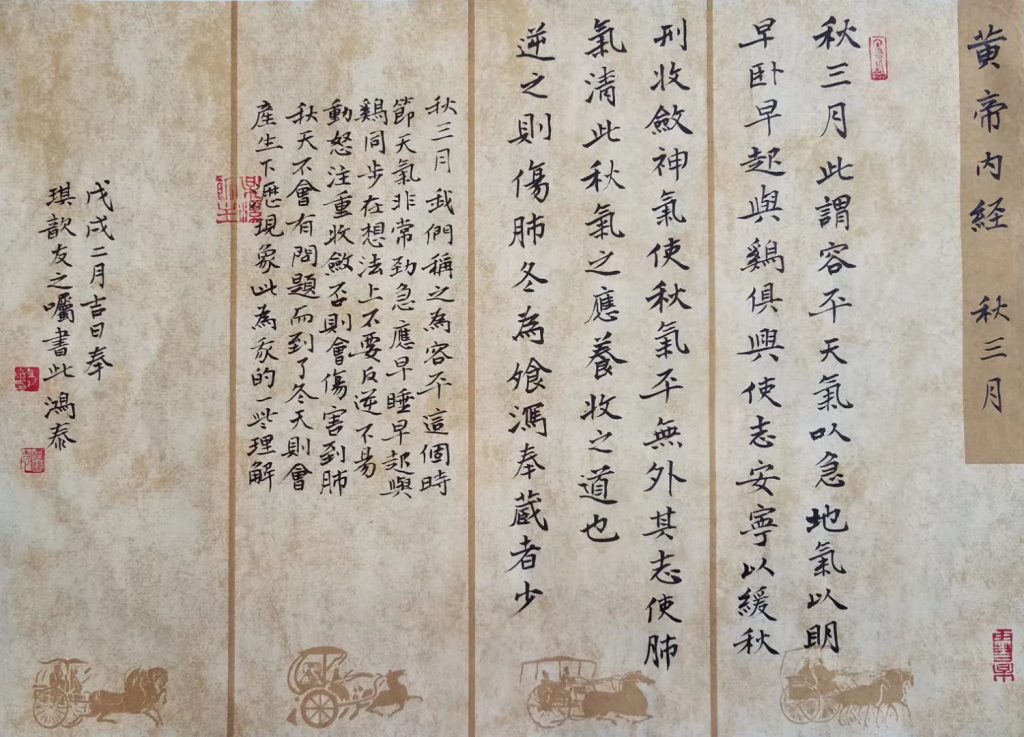 黄帝内经 秋三月
秋三月此謂容平天氣以急地氣以明
早卧早起與鷄俱興使志安寧以緩秋
刑收斂神氣使秋氣平無外其志使肺
氣清此秋氣之應養收之道也
逆之則傷肺冬為飧馮奉蔵者少
秋三月我們稱之為容平這個時
節天氣非常劲急應早睡早起與
鷄同步在想法上不要反逆不易
動怒注重收斂否則會傷害到肺
秋天不會有問題而到了冬天則會
產生下歷現象此為家的一些理解
戊戌二月吉日奉
琪歆友之囑書此鴻泰